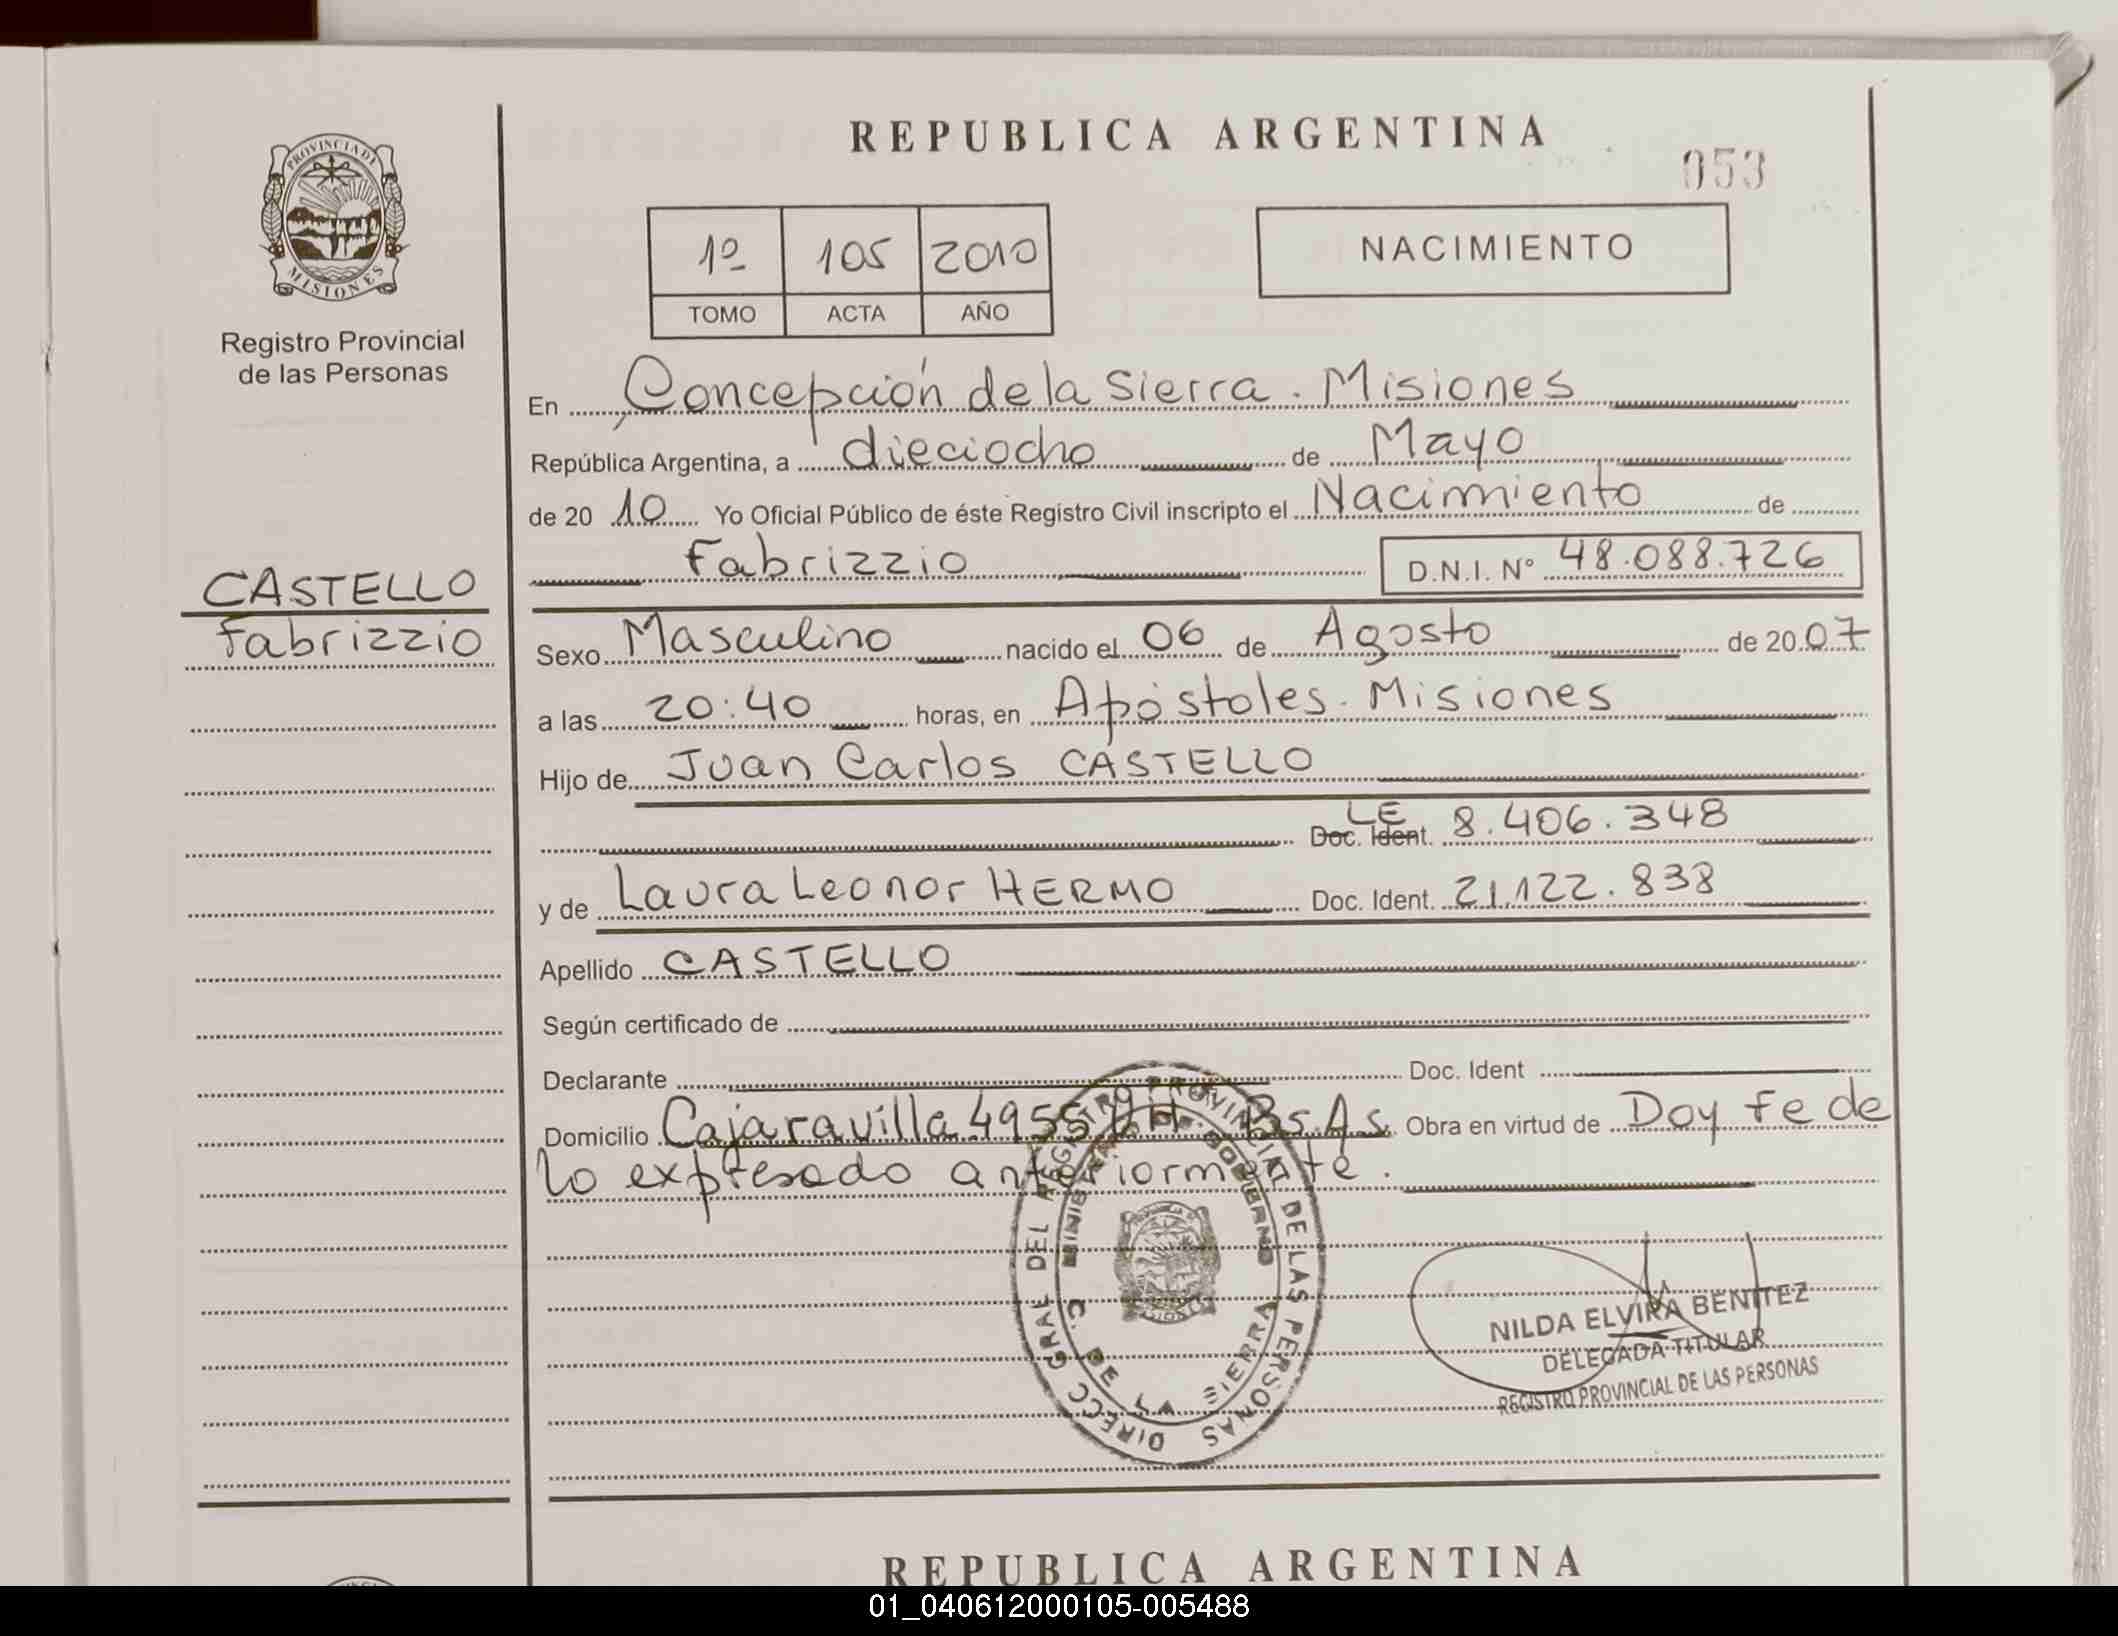 REPUBLICA ARGENTINA
053
PROVINCIA DE
MISIONES
Registro Provincial
de las Personas
1º 105 2010
TOMO ACTA AÑO
NACIMIENTO
En Concepción de la Sierra. Misiones
República Argentina, a dieciocho de Mayo
de 2010 Yo Oficial Público de éste Registro Civil inscripto el Nacimiento de
Fabrizzio D.N.I. Nº 48.088.726
CASTELLO
Fabrizzio
Sexo Masculino nacido el 06 de Agosto de 2007
a las 20:40 horas, en Apóstoles. Misiones
Hijo de Juan Carlos CASTELLO
LE
Doc. Ident. 8.406.348
y de Laura Leonor HERMO Doc. Ident. 21.122.838
Apellido CASTELLO
Según certificado de
Declarante Doc. Ident
Domicilio Cajaravilla 4955 Bs.As. Obra en virtud de Doy fe de
lo expresado anteriormente.
DIRECC GRAL DEL REGISTRO PROVINCIAL DE LAS PERSONAS
MINISTERIO DE GOBIERNO
C. DE LA SIERRA
NILDA ELVIRA BENITEZ
DELEGADA TITULAR
REGISTRO PROVINCIAL DE LAS PERSONAS
REPUBLICA ARGENTINA
01_040612000105-005488